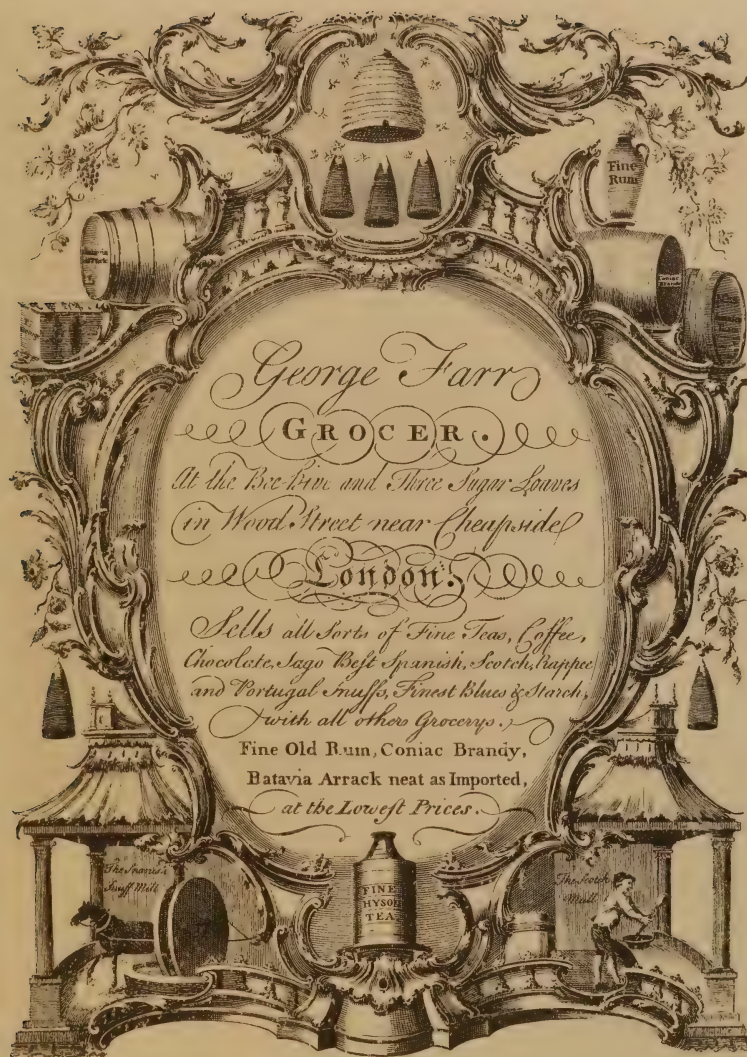 Fine
Rum
Batavia
Arrack
Coniac
Brandy
George Farr
GROCER.
At the Bee-hive and Three Sugar Loaves
in Wood Street near Cheapside
London.
Sells all Sorts of Fine Teas, Coffee,
Chocolate, Sago Beſt Spanish, Scotch, Rappee
and Portugal Snuffs, Finest Blues & Starch,
with all others Grocerys.
Fine Old Rum, Coniac Brandy,
Batavia Arrack neat as Imported,
at the Loweſt Prices.
The Spanish
Snuff Mill
FINE
HYSON
TEA
The Scotch
Mill